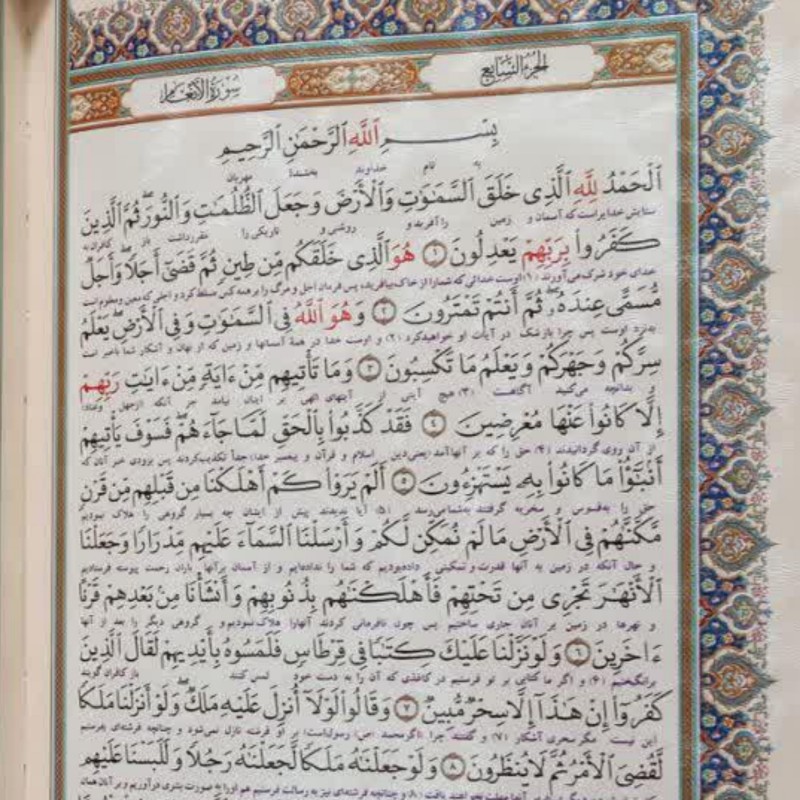 الجزء السابع
سورة الأنعام
بِسْمِ ٱللَّهِ ٱلرَّحْمَٰنِ ٱلرَّحِيمِ
به نام خداوند بخشندهٔ مهربان
ٱلْحَمْدُ لِلَّهِ ٱلَّذِى خَلَقَ ٱلسَّمَٰوَٰتِ وَٱلْأَرْضَ وَجَعَلَ ٱلظُّلُمَٰتِ وَٱلنُّورَ ثُمَّ ٱلَّذِينَ
ستایش خدا یراست که آسمان و زمین را آفرید و روشنی و تاریکی را مقرر داشت باز کافران به
كَفَرُوا۟ بِرَبِّهِمْ يَعْدِلُونَ ١ هُوَ ٱلَّذِى خَلَقَكُم مِّن طِينٍ ثُمَّ قَضَىٰٓ أَجَلًا وَأَجَلٌ
خدای خود شرک می‌آورند (۱) اوست خدائی که شما را از خاک بیافریده پس فرمان اجل و مرگ را بر همه کس مسلط کرد و اجلی که معین و معلوم است
مُّسَمًّى عِندَهُۥ ثُمَّ أَنتُمْ تَمْتَرُونَ ٢ وَهُوَ ٱللَّهُ فِى ٱلسَّمَٰوَٰتِ وَفِى ٱلْأَرْضِ يَعْلَمُ
بنزد اوست پس چرا باز شک در آیات او خواهید کرد (۲) و اوست خدا در همهٔ آسمانها و زمین که از نهان و آشکار شما باخبر است
سِرَّكُمْ وَجَهْرَكُمْ وَيَعْلَمُ مَا تَكْسِبُونَ ٣ وَمَا تَأْتِيهِم مِّنْ ءَايَةٍ مِّنْ ءَايَٰتِ رَبِّهِمْ
و بدانچه می‌کنید آگاهست (۳) هیچ آیتی از آیتهای الهی بر اینان نیامد جز آنکه (ازجهل وعناد)
إِلَّا كَانُوا۟ عَنْهَا مُعْرِضِينَ ٤ فَقَدْ كَذَّبُوا۟ بِٱلْحَقِّ لَمَّا جَآءَهُمْ فَسَوْفَ يَأْتِيهِمْ
از آن روی گردانیدند (۴) حق را که بر آنها آمد (یعنی دین اسلام و قرآن و پیغمبر حق) جداً تکذیب کردند پس بزودی خبر آنان که
أَنۢبَٰٓؤُا۟ مَا كَانُوا۟ بِهِۦ يَسْتَهْزِءُونَ ٥ أَلَمْ يَرَوْا۟ كَمْ أَهْلَكْنَا مِن قَبْلِهِم مِّن قَرْنٍ
حق را به‌فسوس و سخریه گرفتند به‌شما می‌رسد (۵) آیا ندیدند پیش از ایشان چه بسیار گروهی را هلاک نمودیم
مَّكَّنَّٰهُمْ فِى ٱلْأَرْضِ مَا لَمْ نُمَكِّن لَّكُمْ وَأَرْسَلْنَا ٱلسَّمَآءَ عَلَيْهِم مِّدْرَارًا وَجَعَلْنَا
و حال آنکه در زمین به آنها قدرت و تمکینی داده بودیم که شما را نداده‌ایم و از آسمان برآنها باران رحمت پیوسته فرستادیم
ٱلْأَنْهَٰرَ تَجْرِى مِن تَحْتِهِمْ فَأَهْلَكْنَٰهُم بِذُنُوبِهِمْ وَأَنشَأْنَا مِنۢ بَعْدِهِمْ قَرْنًا
و نهرها در زمین بر آنان جاری ساختیم پس چون نافرمانی کردند آنها را هلاک نمودیم و گروهی دیگر را بعد از آنها
ءَاخَرِينَ ٦ وَلَوْ نَزَّلْنَا عَلَيْكَ كِتَٰبًا فِى قِرْطَاسٍ فَلَمَسُوهُ بِأَيْدِيهِمْ لَقَالَ ٱلَّذِينَ
برانگیختیم (۶) و اگر ما کتابی بر تو فرستیم در کاغذی که آن را به دست خود لمس کنند باز کافران گویند
كَفَرُوٓا۟ إِنْ هَٰذَآ إِلَّا سِحْرٌ مُّبِينٌ ٧ وَقَالُوا۟ لَوْلَآ أُنزِلَ عَلَيْهِ مَلَكٌ وَلَوْ أَنزَلْنَا مَلَكًا
این نیست مگر سحری آشکار (۷) و گفتند چرا (اگر محمد (ص) رسول است) بر او فرشته نازل نمی‌شود و چنانچه فرشته‌ای بفرستیم
لَّقُضِىَ ٱلْأَمْرُ ثُمَّ لَا يُنظَرُونَ ٨ وَلَوْ جَعَلْنَٰهُ مَلَكًا لَّجَعَلْنَٰهُ رَجُلًا وَلَلَبَسْنَا عَلَيْهِم
دیگر آنها مهلت نخواهند یافت (۸) و چنانچه فرشته‌ای نیز به رسالت فرستیم هم او را به صورت بشری درآوریم و بر آنان همان